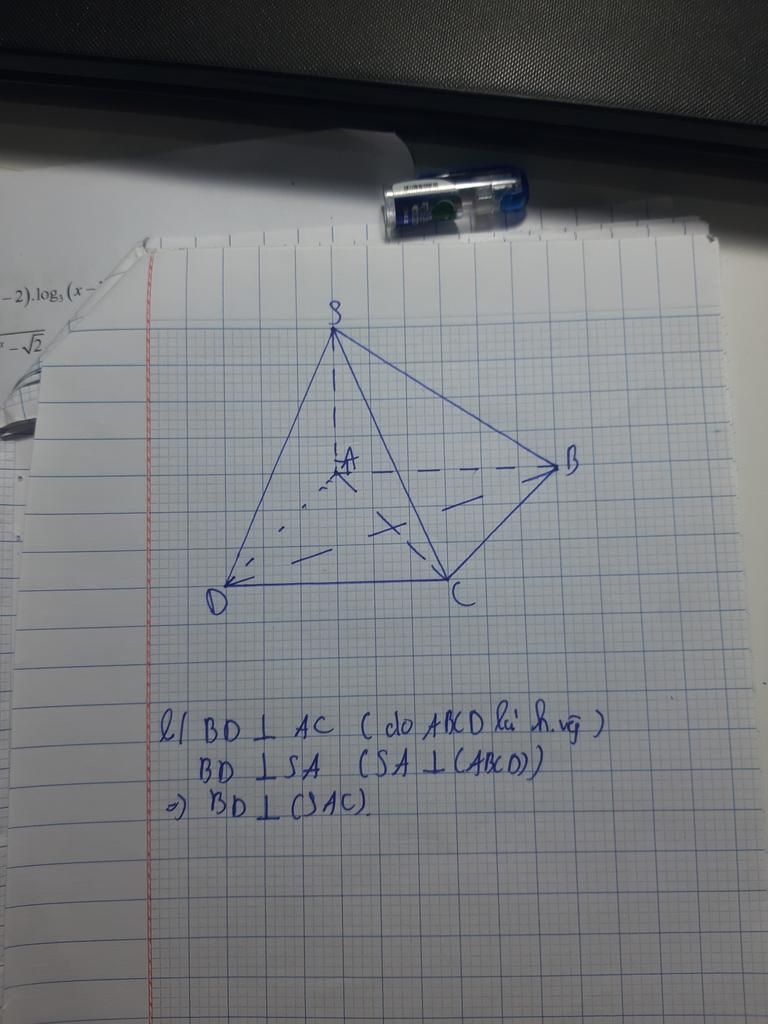 - 2).log₃(x -
x - √2
S
A
B
D
C
b/ BD ⊥ AC ( do ABCD là h.vg )
BD ⊥ SA (SA ⊥ (ABCD))
=> BD ⊥ (SAC).